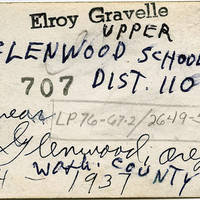 Elroy Gravelle
UPPER
GLENWOOD SCHOOL
707 DIST. 110
near LP76-67-2/2649-
Glenwood, Ore
WASH. COUNTY
1937